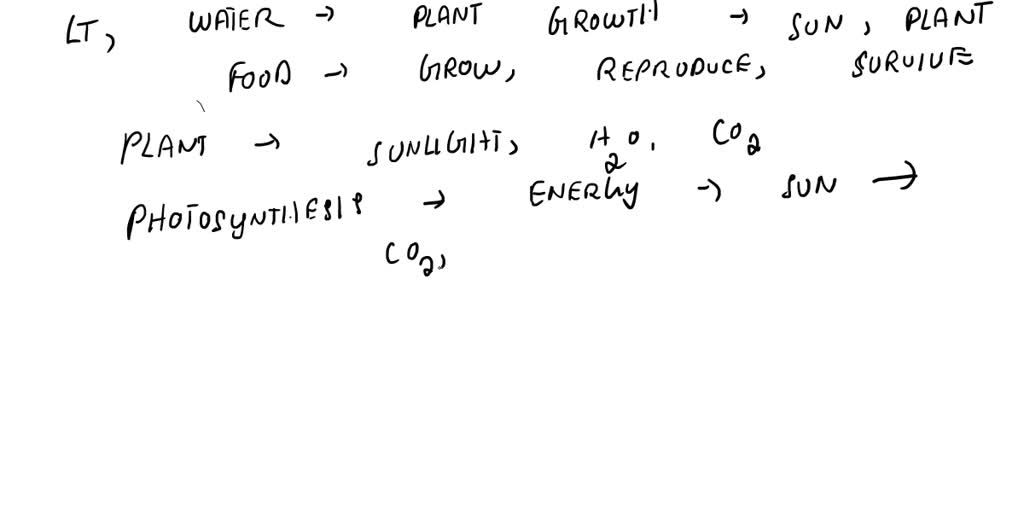 LT, WATER → PLANT GROWTH → SUN, PLANT
FOOD → GROW, REPRODUCE, SURVIVE
PLANT → SUNLIGHT, H2O, CO2
PHOTOSYNTHESIS → ENERGY → SUN →
CO2,